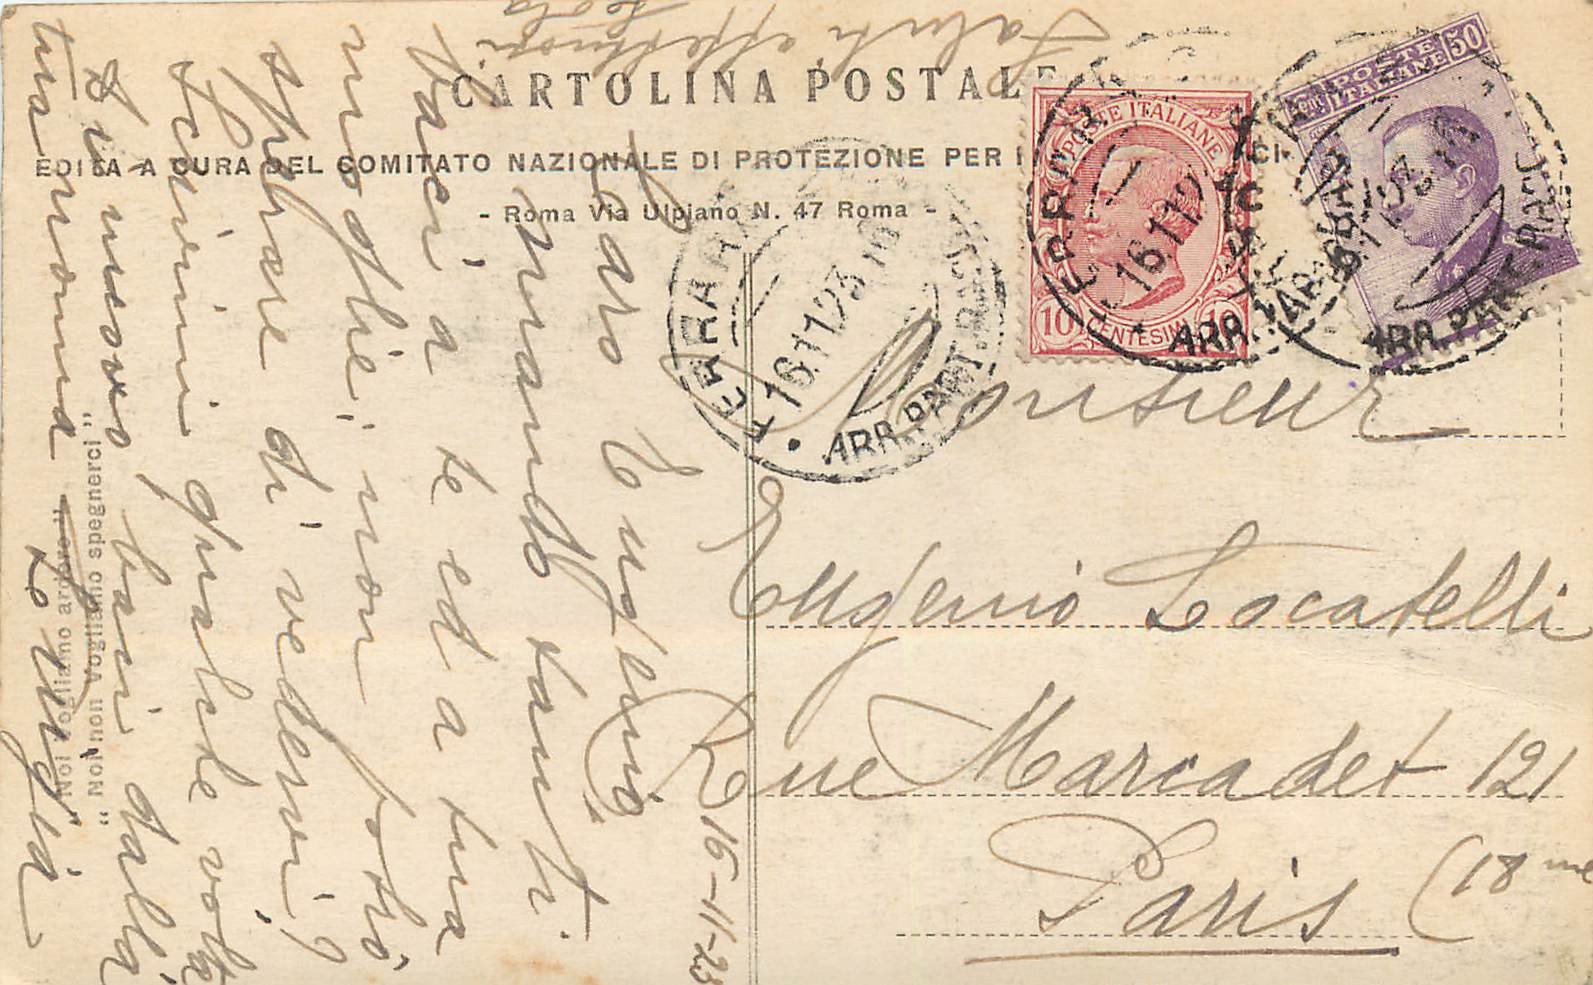 CARTOLINA POSTALE
EDITA A CURA DEL COMITATO NAZIONALE DI PROTEZIONE PER I
- Roma Via Ulpiano N. 47 Roma -
POSTE ITALIANE
10 CENTESIMI 10
POSTE ITALIANE
Cent. 50
FERRARA
16.11.23.16
ARR. PART.
Saluti affettuosi
16-11-23
Caro Eugenio
mando tanti
baci a te ed a tua
moglie, non potrò
sperare di vedervi?
Scrivimi qualche volta
Di nuovo baci dalla
tua nonna
Luigia
"Noi vogliamo ardere"
"Noi non vogliamo spegnerci"
Monsieur
Eugenio Locatelli
Rue Marcadet 121
Paris (18me